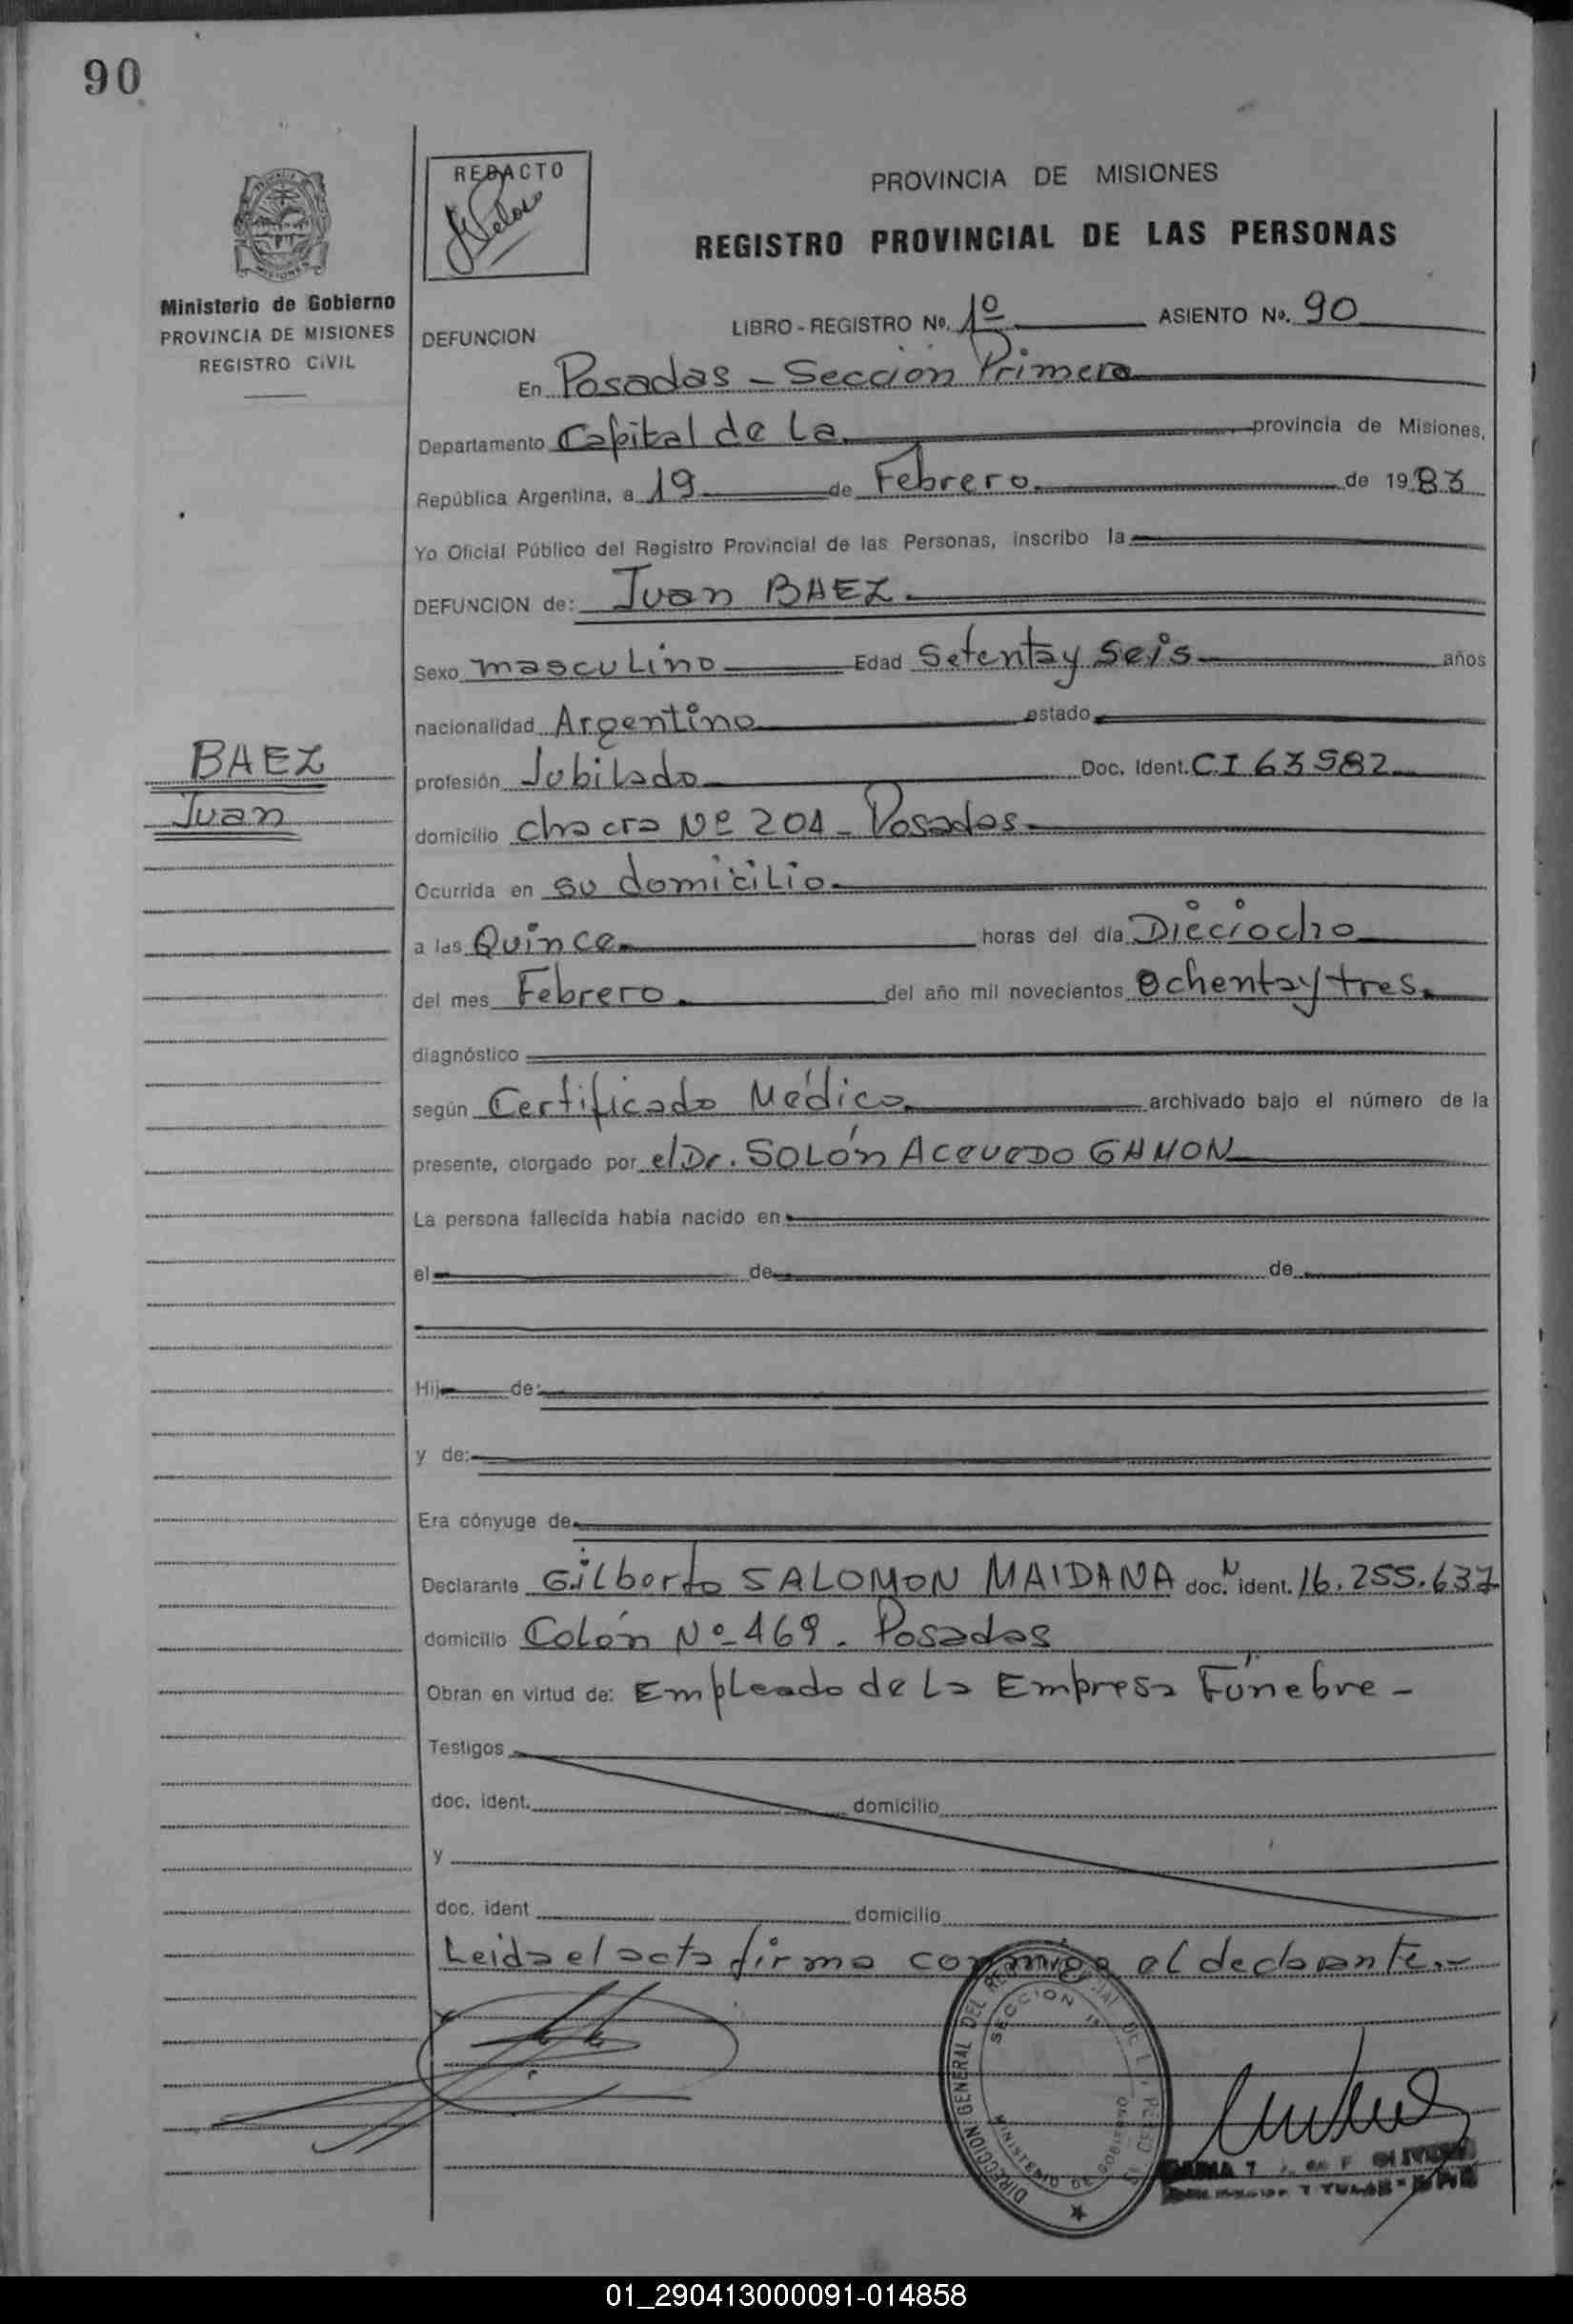 90
REDACTO
PROVINCIA DE MISIONES
REGISTRO PROVINCIAL DE LAS PERSONAS
MISIONES
Ministerio de Gobierno
PROVINCIA DE MISIONES
REGISTRO CIVIL
DEFUNCION
LIBRO - REGISTRO Nº. 1º ASIENTO Nº. 90
En Posadas - Sección Primera
Departamento Capital de La provincia de Misiones,
República Argentina, a 19 de Febrero de 1983
Yo Oficial Público del Registro Provincial de las Personas, inscribo la
DEFUNCION de: Juan BAEZ
Sexo masculino Edad Setenta y Seis años
nacionalidad Argentino estado
BAEZ
Juan
profesión Jubilado Doc. Ident. CI 63582
domicilio chacra Nº 204 - Posadas
Ocurrida en su domicilio
a las Quince horas del día Dieciocho
del mes Febrero del año mil novecientos Ochenta y tres
diagnóstico
según Certificado Médico archivado bajo el número de la
presente, otorgado por el Dr. SOLÓN ACEVEDO GAMON
La persona fallecida había nacido en
el de de
Hij de:
y de:
Era cónyuge de
Declarante Gilberto SALOMON MAIDANA doc. ident. 16.255.637
domicilio Colón Nº 469. Posadas
Obran en virtud de: Empleado de La Empresa Fúnebre -
Testigos
doc. ident. domicilio
y
doc. ident domicilio
Leida el acta firma conmigo el declarante.-
DIRECCION GENERAL DEL
SECCION 1ª
MINISTERIO DE GOBIERNO
01_290413000091-014858